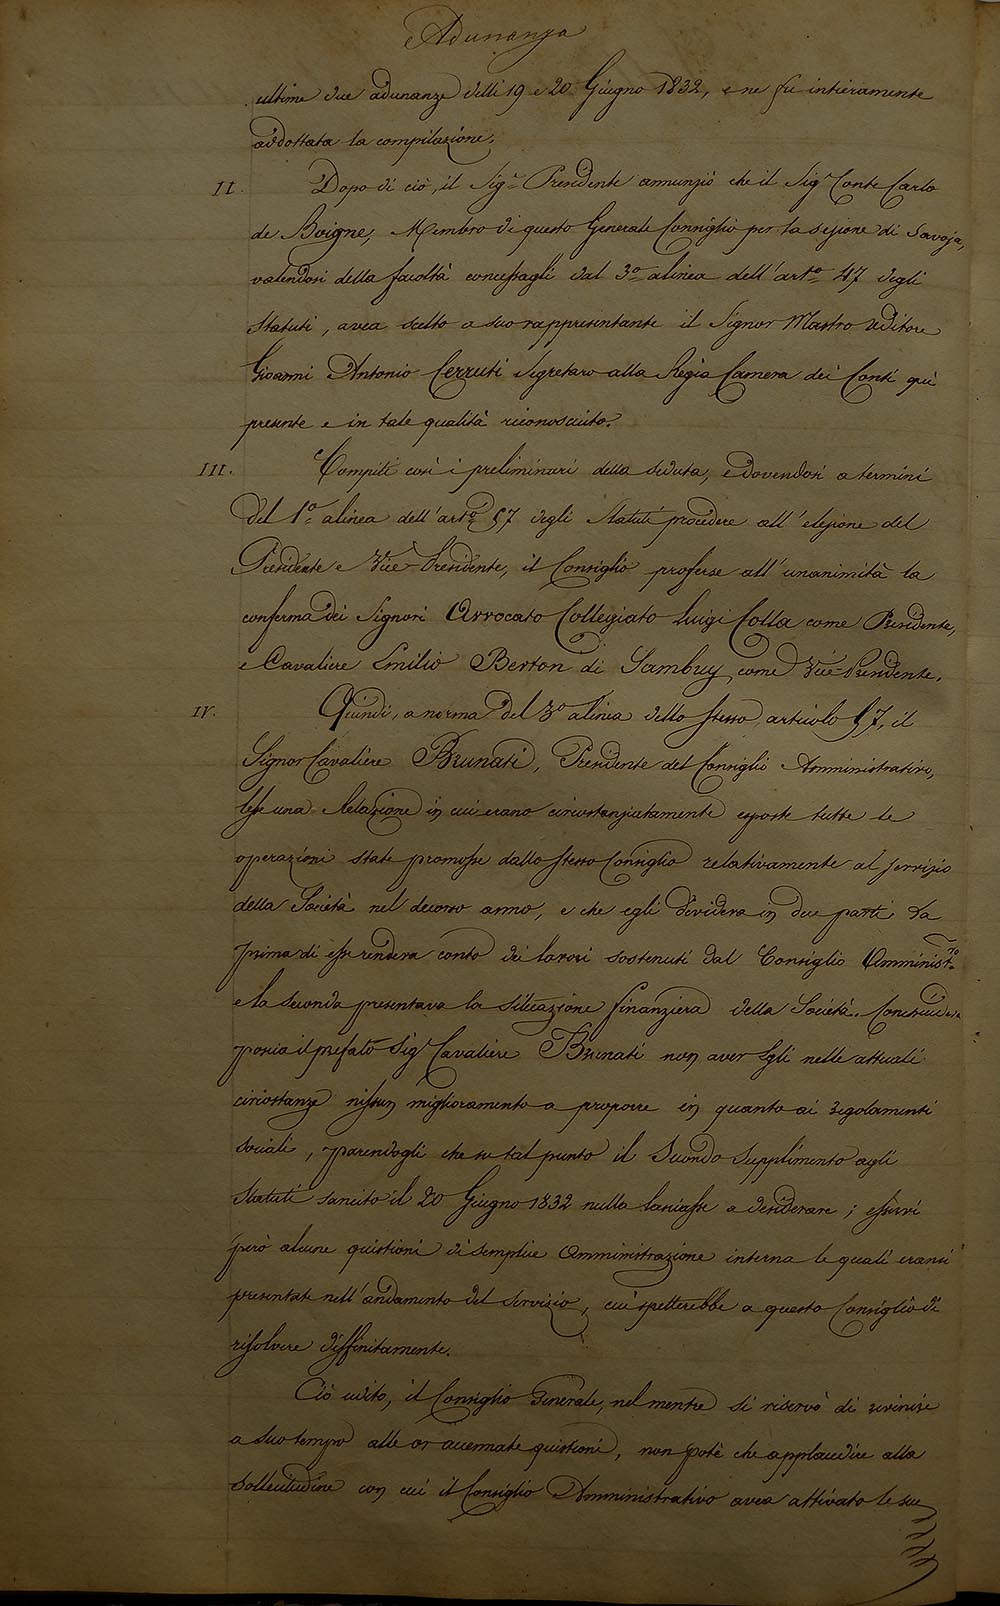 Adunanza
ultime due adunanze delli 19 e 20 Giugno 1832, e ne fu intieramente
addottata la compilazione.
II. Dopo di ciò, il Sigr. Presidente annunziò che il Sigr Conte Carlo
de Boigne, Membro di questo Generale Consiglio per la sezione di Savoja,
valendosi della facoltà concessagli dal 3o alinea dell'arto 47 degli
Statuti, avea scelto a suo rappresentante il Signor Mastro Uditore
Gioanni Antonio Cerruti Segretaro alla Regia Camera dei Conti quì
presente e in tale qualità riconosciuto.
III. Compiti così i preliminari della seduta, e dovendosi a termini
del 1o alinea dell'arto 57 degli Statuti procedere all'elezione del
Presidente e Vice-Presidente, il Consiglio proferse all'unanimità la
conferma dei Signori Avvocato Collegiato Luigi Colla come Presidente,
e Cavaliere Emilio Berton di Sambuy come Vice Presidente.
IV. Quindi, a norma del 3o alinea dello stesso articolo 57, il
Signor Cavaliere Brunati, Presidente del Consiglio Amministrativo,
lesse una Relazione in cui erano circostanziatamente esposte tutte le
operazioni state promosse dallo stesso Consiglio relativamente al servizio
della Società nel decorso anno, e che egli divideva in due parti. La
prima di esse rendeva conto dei lavori sostenuti dal Consiglio Amministvo
e la seconda presentava la situazione finanziera della Società. Conchiudeva
poscia il prefato Sigr Cavaliere Brunati non aver Egli nelle attuali
circostanze nissun miglioramento a proporre in quanto ai regolamenti
sociali, parendogli che su tal punto il Secondo Supplimento agli
Statuti sancito il 20 Giugno 1832 nulla lasciasse a desiderare; esservi
però alcune quistioni di semplice Amministrazione interna le quali eransi
presentate nell'andamento del Servizio, cui spetterebbe a questo Consiglio di
risolvere diffinitamente.
Ciò udito, il Consiglio Generale, nel mentre si riservò di rivenire
a suo tempo alle or accennate quistioni, non potè che applaudire alla
sollecitudine con cui il Consiglio Amministrativo avea attivato le sue